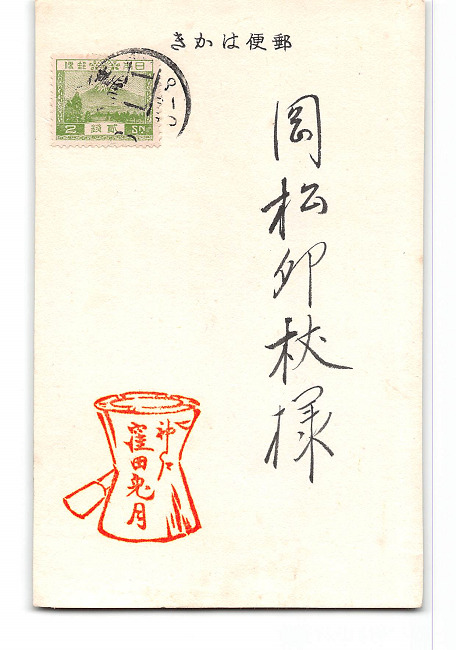 きかは便郵
岡松卯杖様
日本郵便
2 貳銭 Sn
神戸
窪田兎月